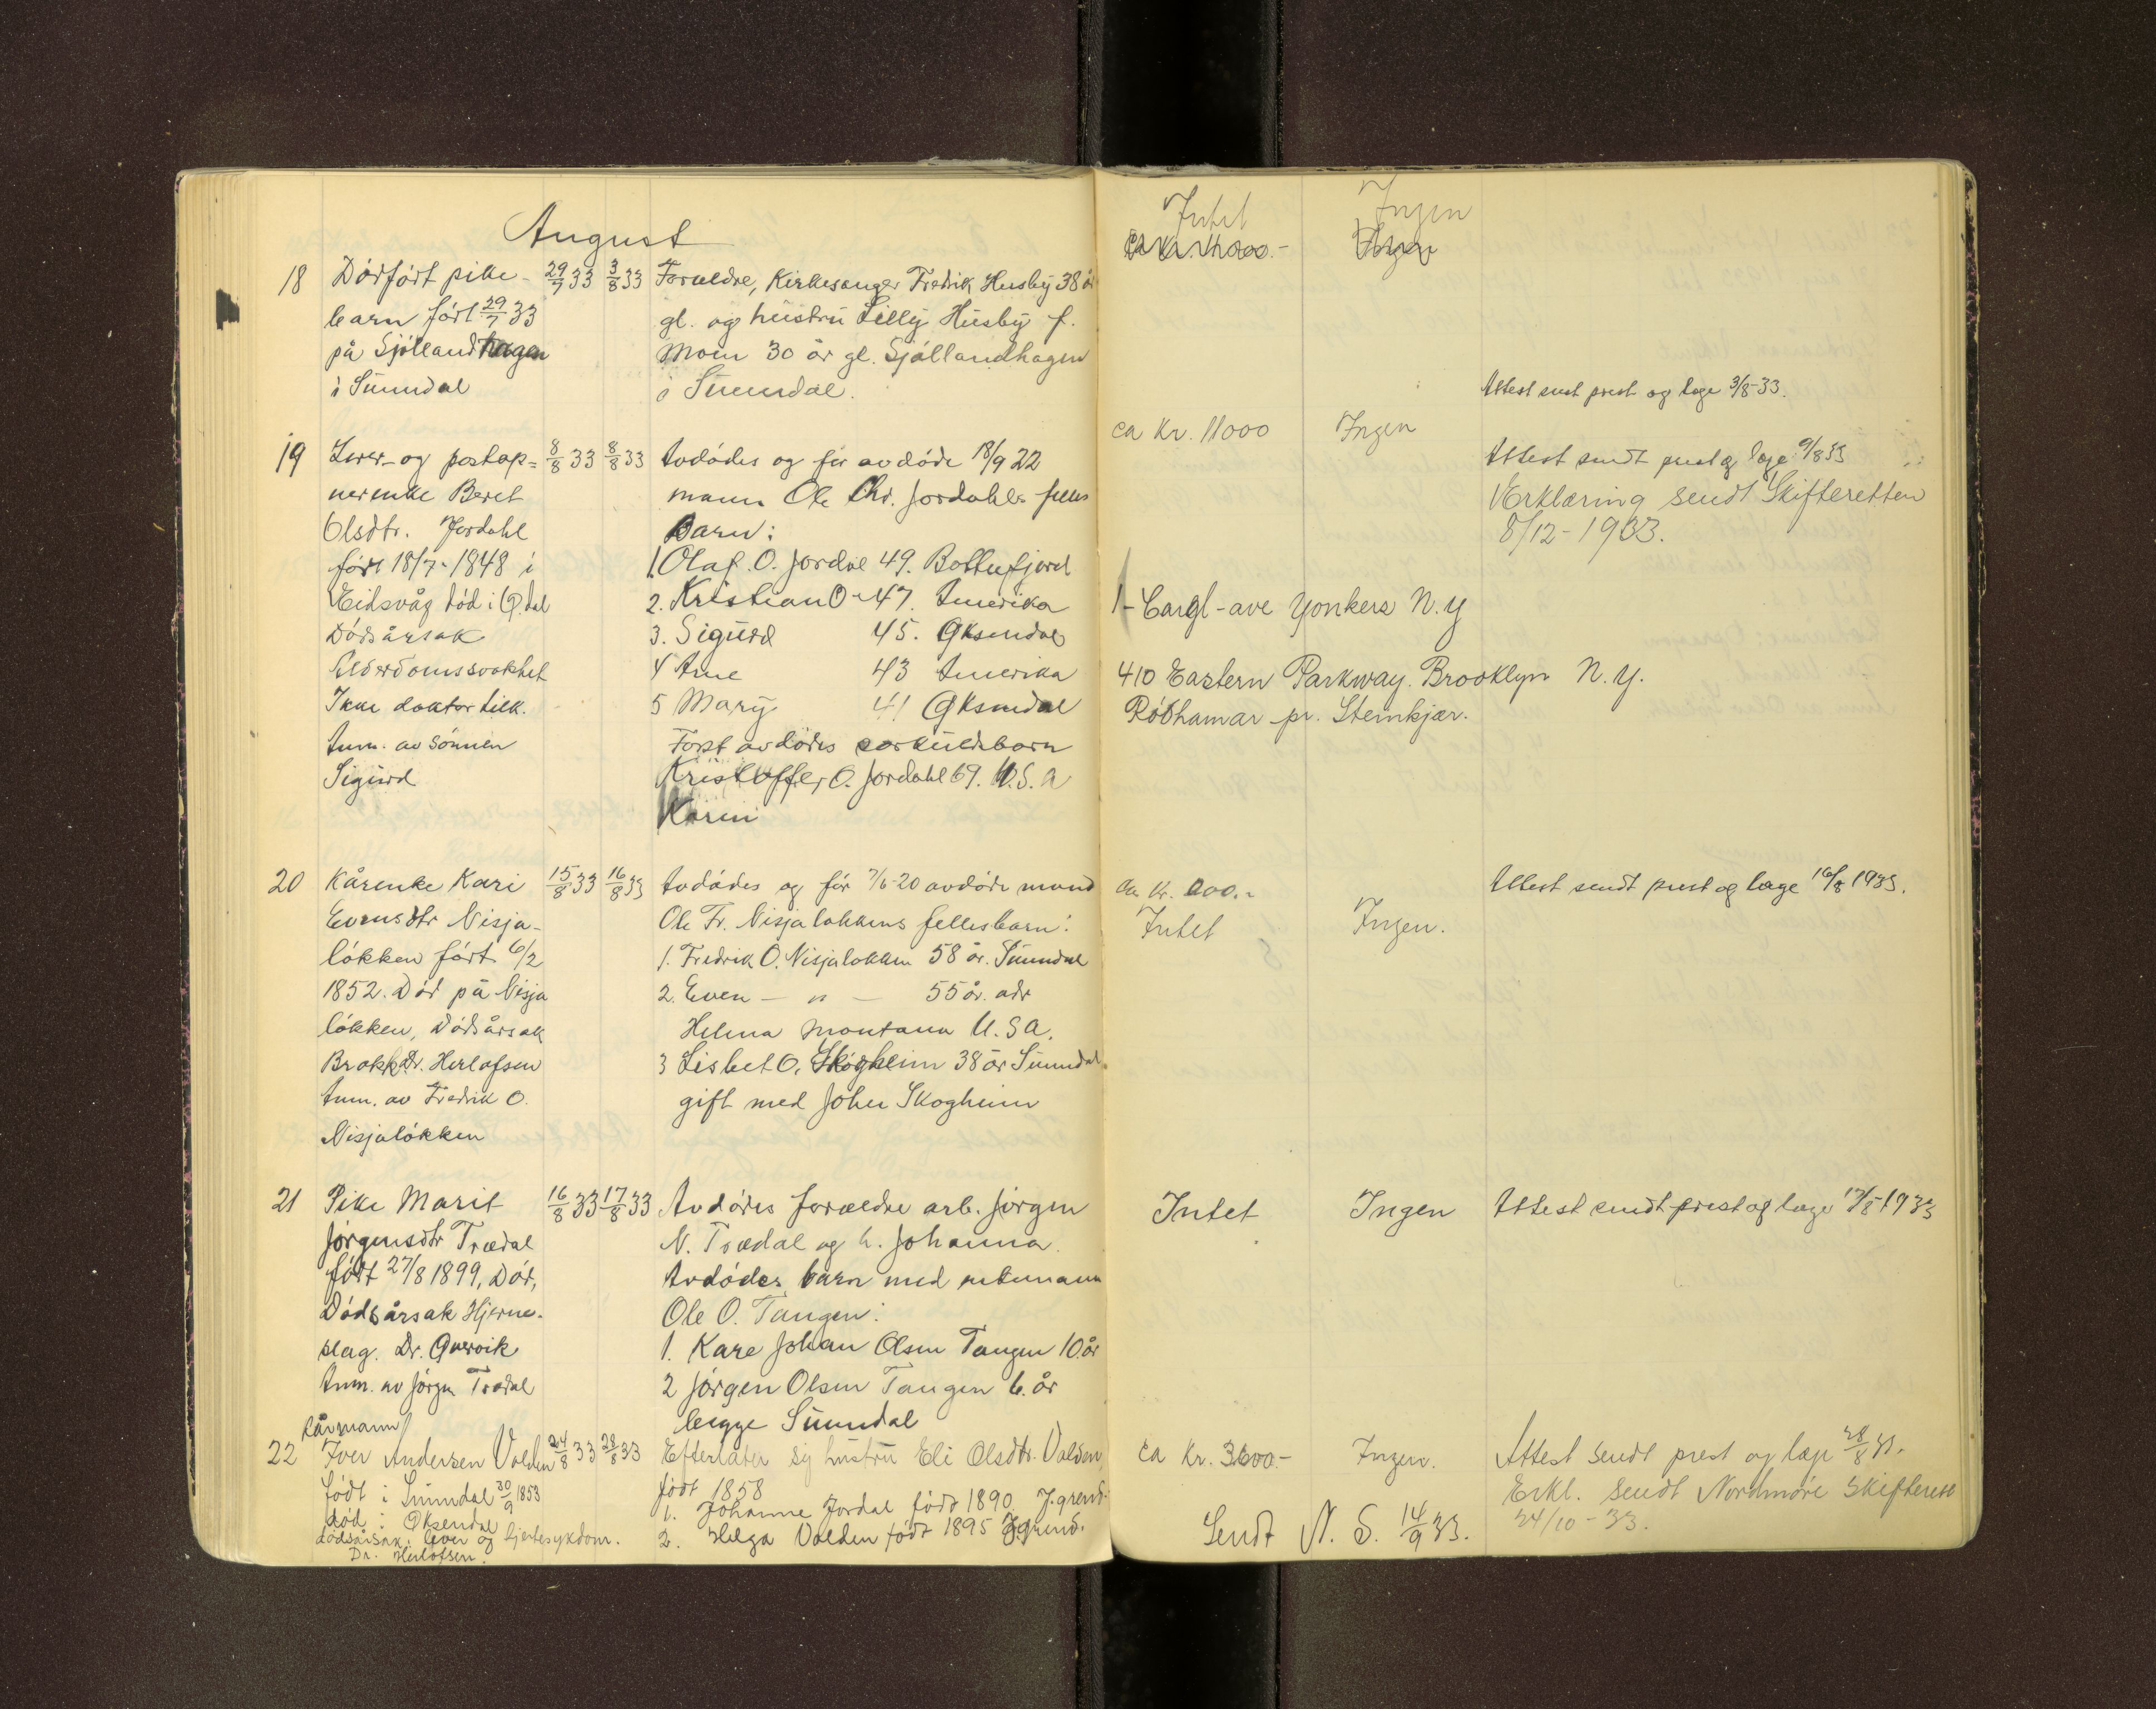 August
Intet Ingen
ca Kr. 11000.- Ingen
18 Dødført pike- 29/7 33 3/8 33 Foreldre, Kirkesanger Fredrik Husby 38 år
barn født 29/7 33 gl. og hustru Lilly Husby f.
på Sjøllandhagen Moen 30 år gl. Sjøllandhagen
i Sunndal i Sunndal.
Attest sent prest og læge 3/8-33.
ca Kr. 11000 Ingen
19 Lærer- og postop= 8/8 33 8/8 33 Avdødes og før avdøde 18/9 22
Attest sendt prest og læge 9/8 33
nerenke Beret mann Ole Chr. Jordahls felles
Erklæring sendt Skifteretten
Olsdtr. Jordahl Barn:
8/12-1933.
født 18/7-1848 i 1. Olaf. O. Jordal 49. Battenfjord
Eidsvåg død i Ø.dal 2. Kristian O- 47. Amerika
1- Cargl-ave Yonkers N.Y
Dødsårsak 3. Sigurd 45. Øksendal
Alderdomssvakhet 4 Arne 43 Amerika
410 Eastern Parkway. Brooklyn N.Y.
Ikke doktor tilk. 5 Mary 41 Øksendal
Rødhamar pr. Steinkjær.
Anm. av sønnen Først avdødes særkuldsbarn
Sigurd Kristoffer O. Jordahl 69. U.S.A
Karen
20 Kårenke Kari 15/8 33 16/8 33 Avdødes og før 7/6-20 avdøde mand
ca Kr. 200.- Attest sendt prest og læge 16/8 1933.
Evensdtr Nisja- Ole Fr. Nisjaløkkens fellesbarn:
Intet Ingen.
løkken født 6/2 1. Fredrik O. Nisjaløkken 58 år. Sunndal
1852. Død på Nisja 2. Even - " - 55 år. adr
løkken, Dødsårsak Helena Montana U.S.A.
Brokk Dr. Herlofsen 3 Lisbet O. Skogheim 38 år Sunndal
Anm. av Fredrik O. gift med Johen Skogheim
Nisjaløkken
21 Pike Marit 16/8 33 17/8 33 Avdødes foreldre arb. Jørgen
Intet Ingen Attest sendt prest og læge 17/8 1933
Jørgensdtr Trædal N. Trædal og h. Johanna.
født 27/8 1899, Død, Avdødes barn med
Dødsårsak Hjerne- Ole O. Tangen:
slag. Dr. Qvervik 1. Kare Johan Olsen Tangen 10 år
Anm. av Jørgen Trædal 2 Jørgen Olsen Tangen 6. år
begge Sunndal
Kårmann
22 Iver Andersen Volden 24/8 33 28/8 33 Efterlater sig hustru Eli Olsdtr. Volden,
ca Kr. 3600.- Ingen. Attest sendt prest og læge 28/8 33.
født i Sunndal 30/9 1853 født 1858
Erkl. sendt Nordmøre Skifterett
død i Øksendal 1. Johanne Jordal født 1890 J.grend.
24/10-33.
dødsårsak: lever og hjertesykdom. 2. Helga Volden født 1895 J.grend.
Sendt N. S. 14/9 33.
Dr. Herlofsen.